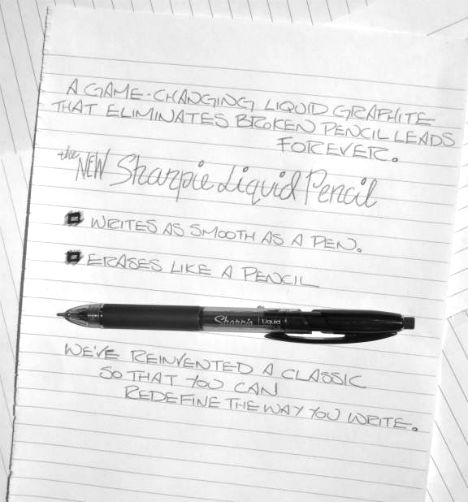 A GAME-CHANGING LIQUID GRAPHITE
THAT ELIMINATES BROKEN PENCIL LEADS
FOREVER.
the NEW Sharpie Liquid Pencil
WRITES AS SMOOTH AS A PEN.
ERASES LIKE A PENCIL
Sharpie Liquid
WE'VE REINVENTED A CLASSIC
SO THAT YOU CAN
REDEFINE THE WAY YOU WRITE.